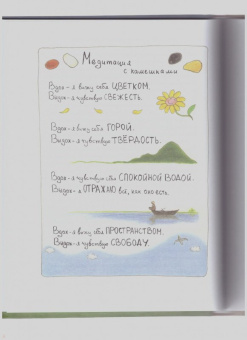 Медитация
с камешками
Вдох - я вижу себя ЦВЕТКОМ.
Выдох - я чувствую СВЕЖЕСТЬ.
Вдох - я вижу себя ГОРОЙ.
Выдох - я чувствую ТВЁРДОСТЬ.
Вдох - я чувствую себя СПОКОЙНОЙ ВОДОЙ.
Выдох - я ОТРАЖАЮ всё, как оно есть.
Вдох - я вижу себя ПРОСТРАНСТВОМ.
Выдох - я чувствую СВОБОДУ.